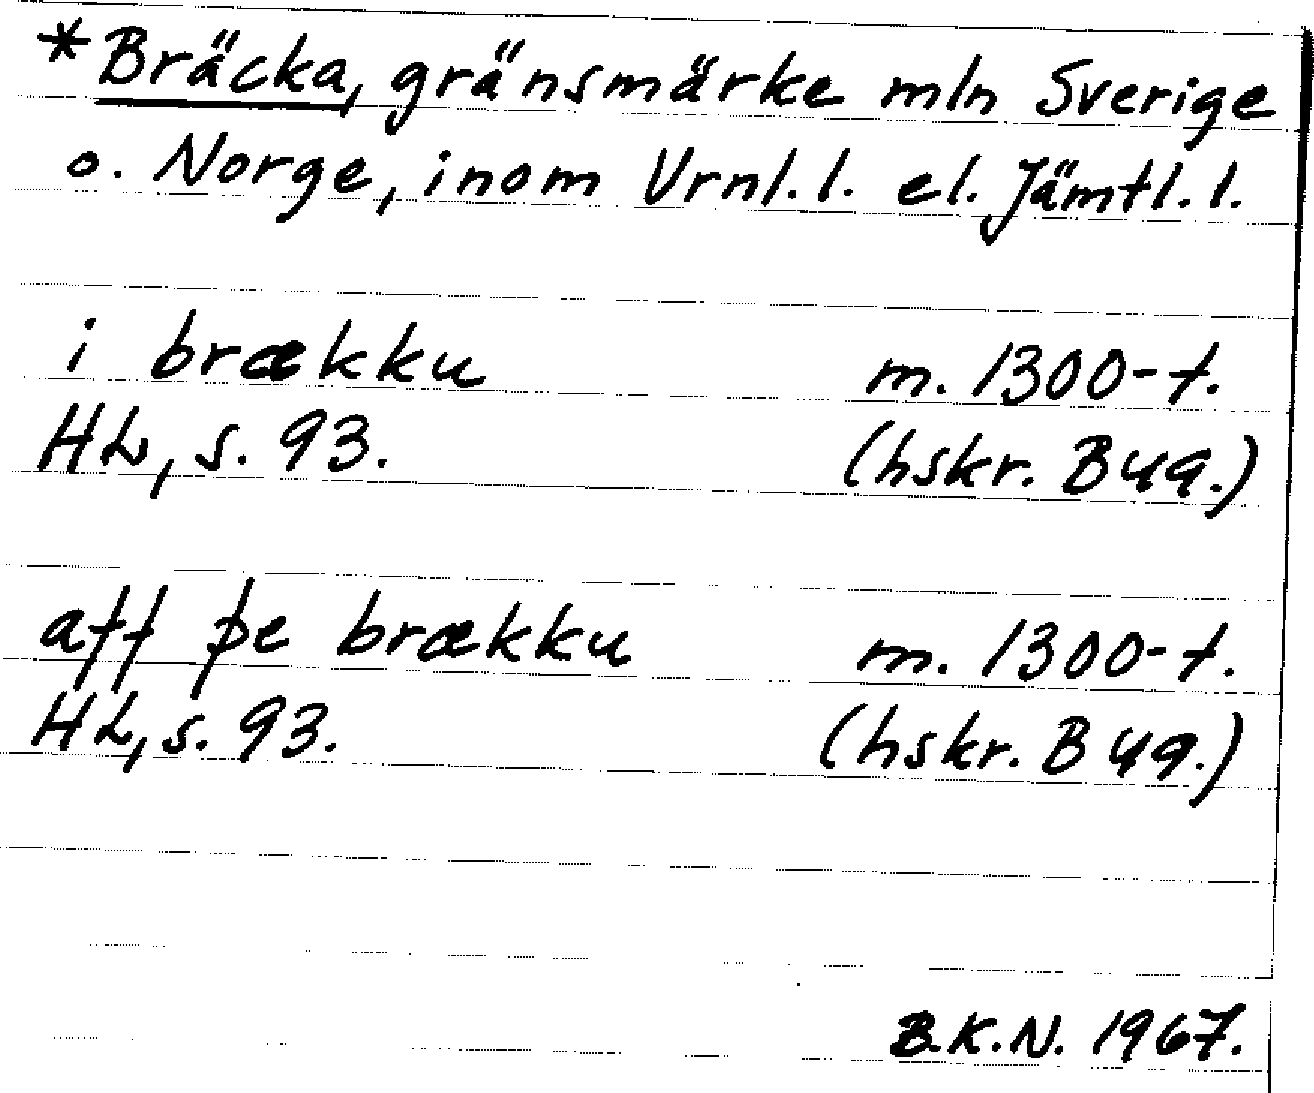 *Bräcka, gränsmärke mln Sverige
o. Norge, inom Vrnl. l. el. Jämtl. l.
i brækku m. 1300-t.
HL, s. 93. (hskr. B 49.)
aff þe brækku m. 1300-t.
HL, s. 93. (hskr. B 49.)
B.K.N. 1967.